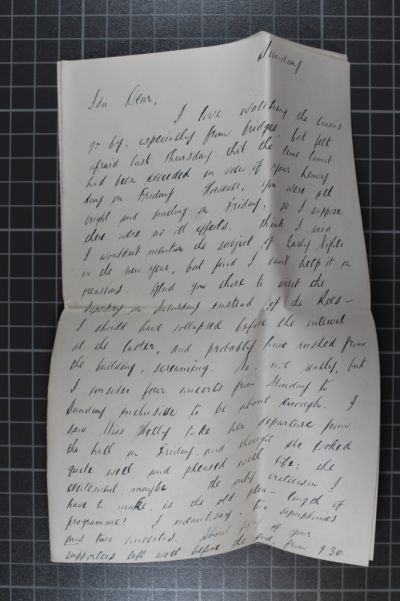 Sunday
Ida Dear,
I love watching the trains
go by, especially from bridges, but felt
afraid last Thursday that the time limit
had been exceeded in view of your heavy
day on Friday. However, you were all
bright and smiling on Friday, so I suppose
there were no ill effects. Think I said
I wouldn't mention the subject of Early Nights
in the new year, but find I can't help it on
occasions. Glad you chose to visit the
on Saturday instead of the
I should have collapsed before the interval
at the latter, and probably have rushed from
the building, screaming. No, not really, but
I consider four concerts from Monday to
Sunday inclusive to be about enough. I
saw Miss take her departure from
the hall on Friday and thought she looked
quite well and pleased with life; the
excitement maybe. The only criticism I
have to make is the old plea - length of
programme! I mean t'say. Two symphonies
and two concertos. of your
supporters left well before the end. From 9.30